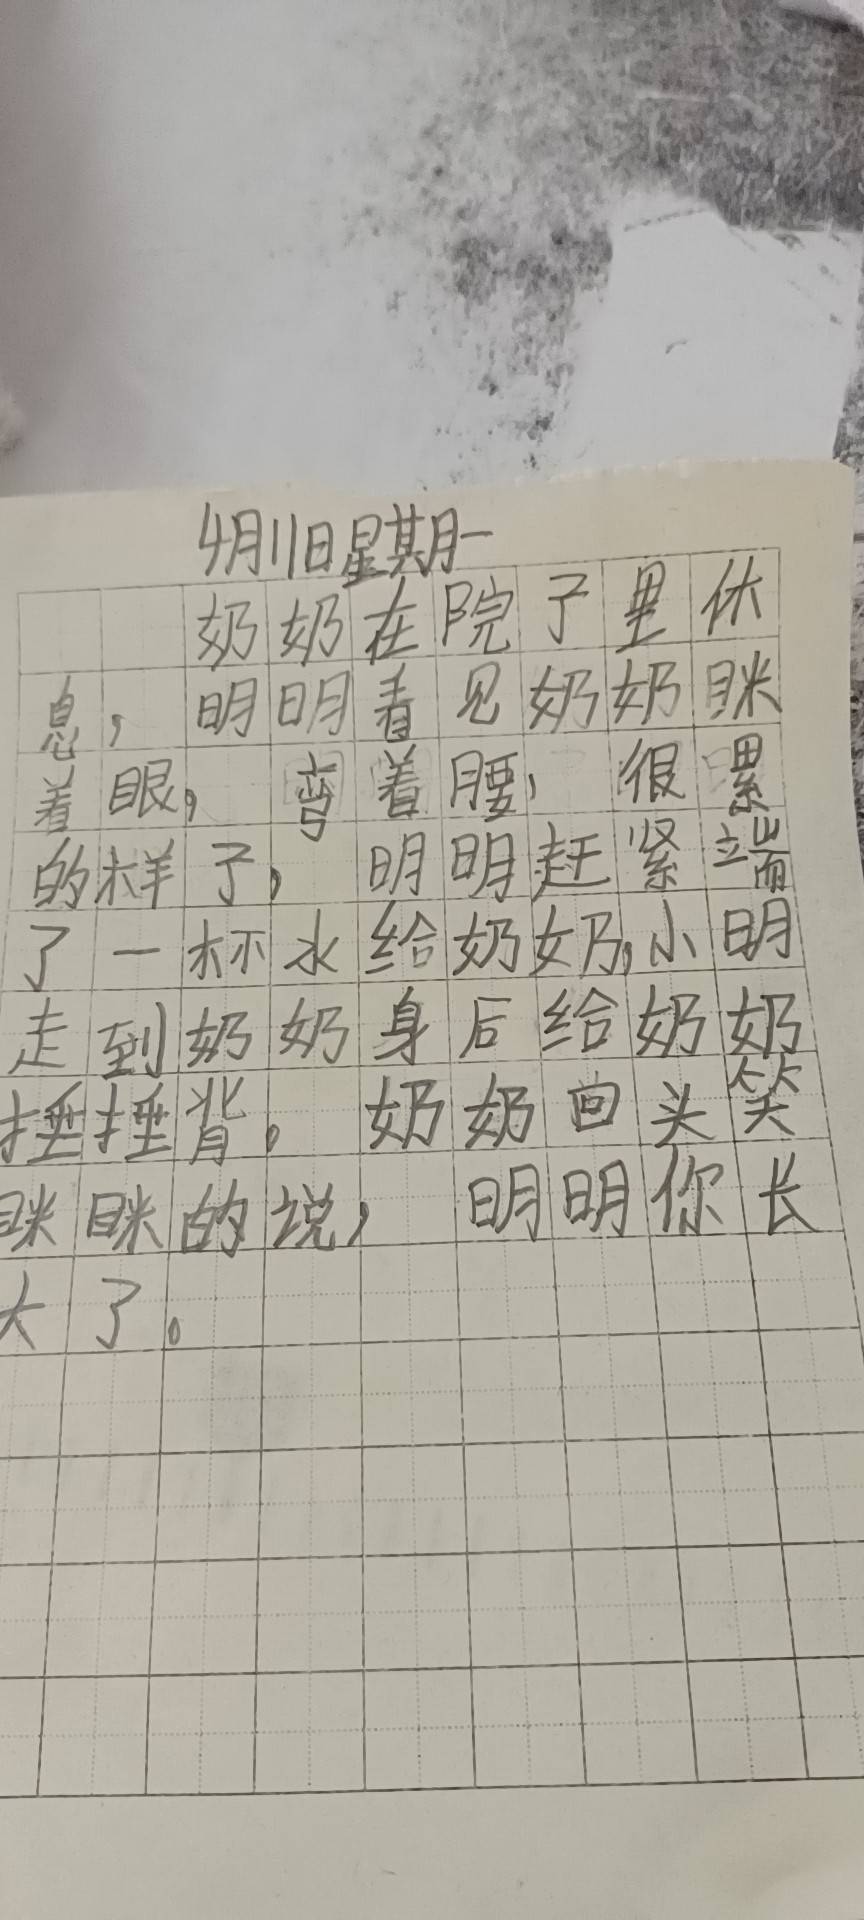 4月11日星期一
奶奶在院子里休
息，明明看见奶奶眯
着眼，弯着腰，很累
的样子，明明赶紧端
了一杯水给奶奶，小明
走到奶奶身后给奶奶
捶捶背。奶奶回头笑
眯眯的说，明明你长
大了。